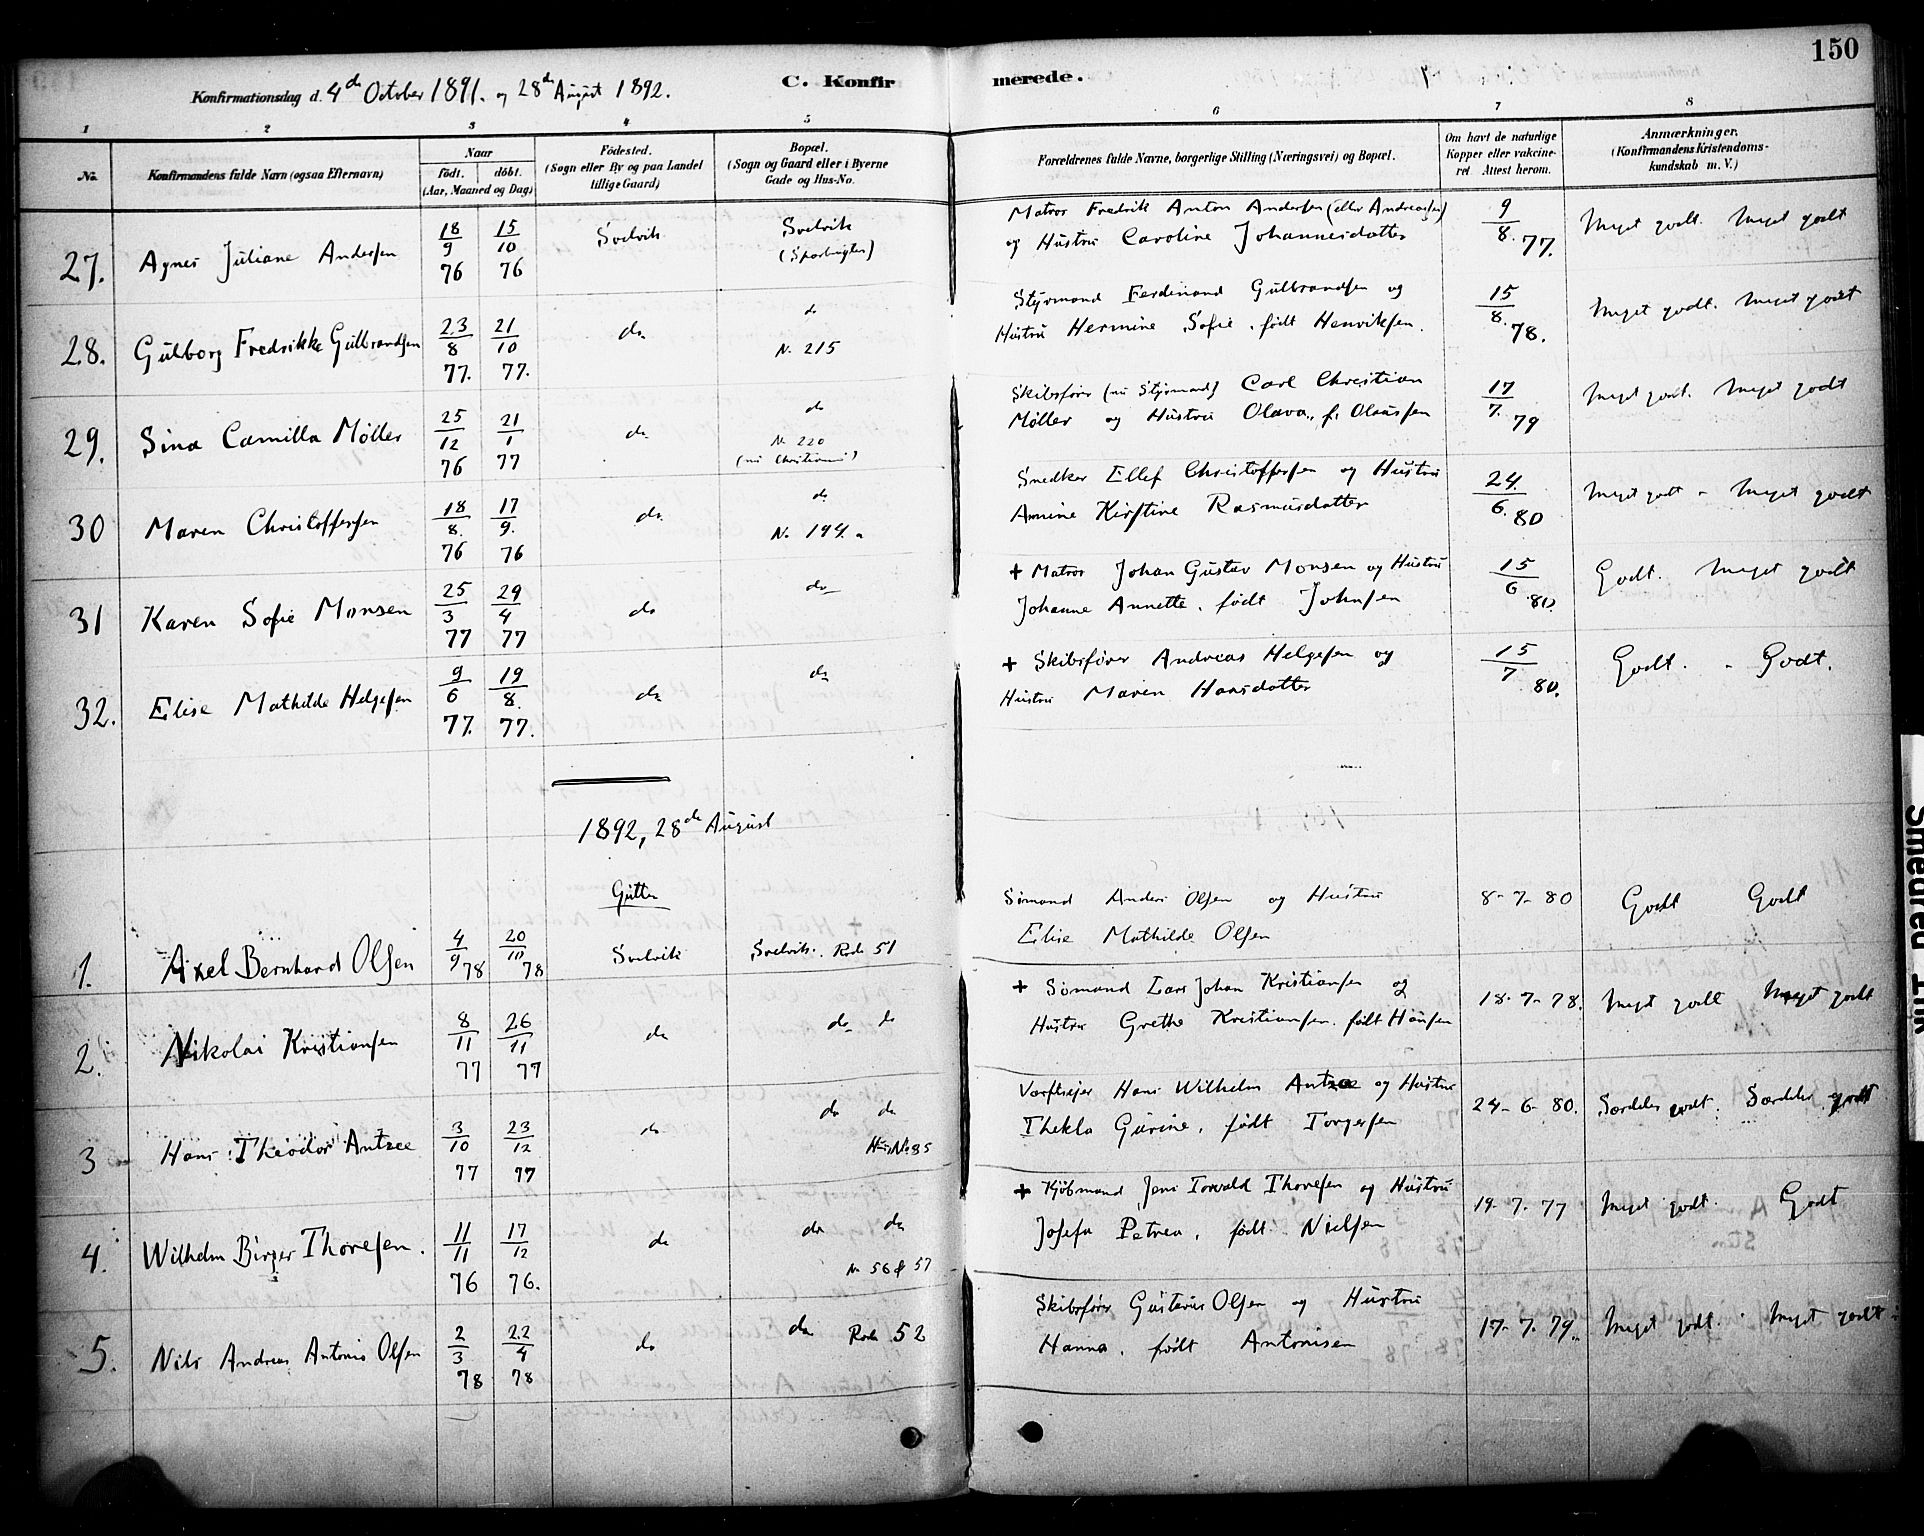 150
Konfirmationsdag d. 4de October 1891. og 28de August 1892.
C. Konfirmerede.
1 2 3 4 5 6 7 8
No.
Konfirmandens fulde Navn (ogsaa Efternavn)
Naar
født. døbt.
(Aar, Maaned og Dag)
Fødested.
(Sogn eller By og paa Landet
tillige Gaard)
Bopæl.
(Sogn og Gaard eller i Byerne
Gade og Hus-No.
Forældrenes fulde Navne, borgerlige Stilling (Næringsvei) og Bopæl.
Om havt de naturlige
Kopper eller vakcine-
ret Attest herom.
Anmærkninger.
(Konfirmandens Kristendoms-
kundskab m. V.)
27. Agnes Juliane Andersen 18/9 76 15/10 76 Svelvik Svelvik
Matros Fredrik Anton Andersen (eller Andreasen)
og Hustru Caroline Johannesdatter
9/8. 77. Meget godt. Meget godt
28. Gulborg Fredrikke Gulbrandsen 23/8 77. 21/10 77. do do
N. 215
Styrmand Ferdinand Gulbrandsen og
Hustru Hermine Sofie, født Henriksen.
15/8. 78. Meget godt. Meget godt
29. Sina Camilla Møller 25/12 76 21/1 77 do do
N. 220
(nu Christiania)
Skibsfører (nu Styrmand) Carl Christian
Møller og Hustru Olava, f. Olausen
17/7. 79 Meget godt. Meget godt
30 Maren Christoffersen 18/8. 76 17/9. 76 do do
N. 194.a
Snedker Ellef Christoffersen og Hustru
Annine Kirstine Rasmusdatter
24/6. 80 Meget godt - Meget godt
31 Karen Sofie Monsen 25/3 77 29/4 77 do do
+ Matros Johan Gustav Monsen og Hustru
Johanne Annette, født Johnsen
15/6 80 Godt. Meget godt
32. Elise Mathilde Helgesen 9/6 77. 19/8. 77. do do
+ Skibsfører Andreas Helgesen og
Hustru Maren Hansdatter
15/7 80. Godt. - Godt.
1892, 28de August
Gutter
1. Axel Bernhard Olsen 4/9 78 20/10 78 Svelvik Svelvik. Rode 51
Sømand Anders Olsen og Hustru
Elise Mathilde Olsen
8-7-80 Godt Godt
2. Nikolai Kristiansen 8/11 77 26/11 77 do do do
+ Sømand Lars Johan Kristiansen og
Hustru Grethe Kristiansen, født Hansen
18-7-78. Meget godt Meget godt
3 Hans Theodor Antzee 3/10 77 23/12 77 do do do
Hus No. 85
Værftseier Hans Wilhelm Antzee og Hustru
Thekla Gurine, født Torgersen
24-6-80. Særdeles godt. Særdeles godt
4. Wilhelm Birger Thoresen. 11/11 76 17/12 76. do do do
N. 56 & 57
+ Kjøbmand Jens Torvald Thoresen og Hustru
Josefa Petrea, født Nielsen
19.7.77 Meget godt. Godt
5. Nils Andreas Antonio Olsen 2/3 78 22/4 78 do do Rode 52
Skibsfører Gusterius Olsen og Hustru
Hanna, født Antonisen
17-7.79. Meget godt. Meget godt